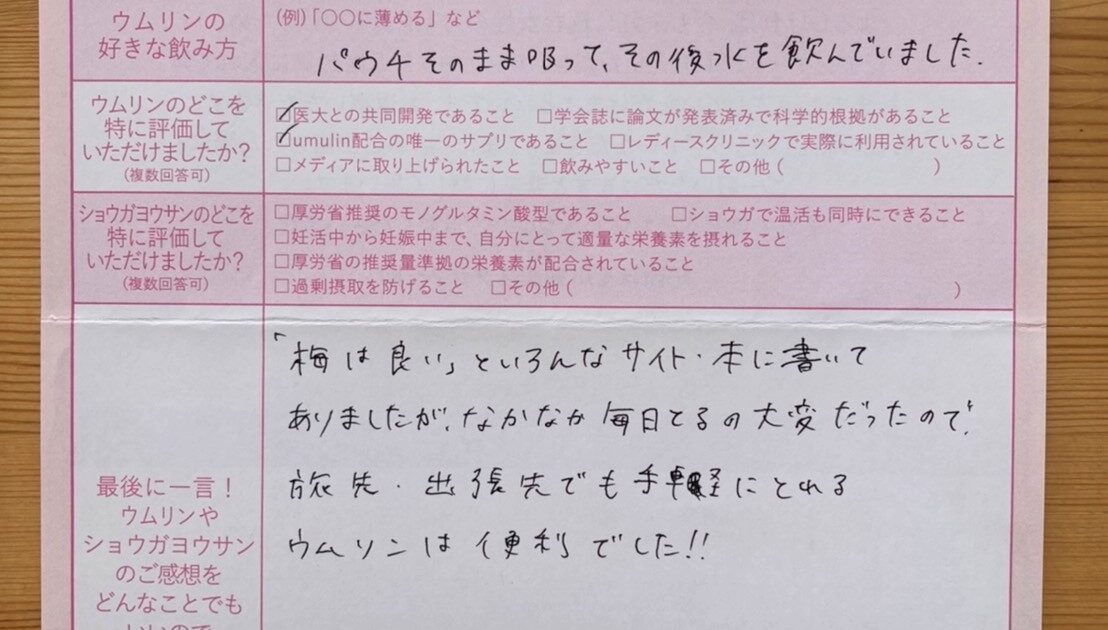 ウムリンの
好きな飲み方
(例)「〇〇に薄める」など
パウチそのまま吸って、その後水を飲んでいました。
ウムリンのどこを
特に評価して
いただけましたか?
(複数回答可)
☑医大との共同開発であること □学会誌に論文が発表済みで科学的根拠があること
☑umulin配合の唯一のサプリであること □レディースクリニックで実際に利用されていること
□メディアに取り上げられたこと □飲みやすいこと □その他( )
ショウガヨウサンのどこを
特に評価して
いただけましたか?
(複数回答可)
□厚労省推奨のモノグルタミン酸型であること □ショウガで温活も同時にできること
□妊活中から妊娠中まで、自分にとって適量な栄養素を摂れること
□厚労省の推奨量準拠の栄養素が配合されていること
□過剰摂取を防げること □その他( )
最後に一言!
ウムリンや
ショウガヨウサン
のご感想を
どんなことでも
いいので
「梅は良い」といろんなサイト・本に書いて
ありましたが、なかなか毎日とるの大変だったので、
旅先・出張先でも手軽にとれる
ウムリンは便利でした!!